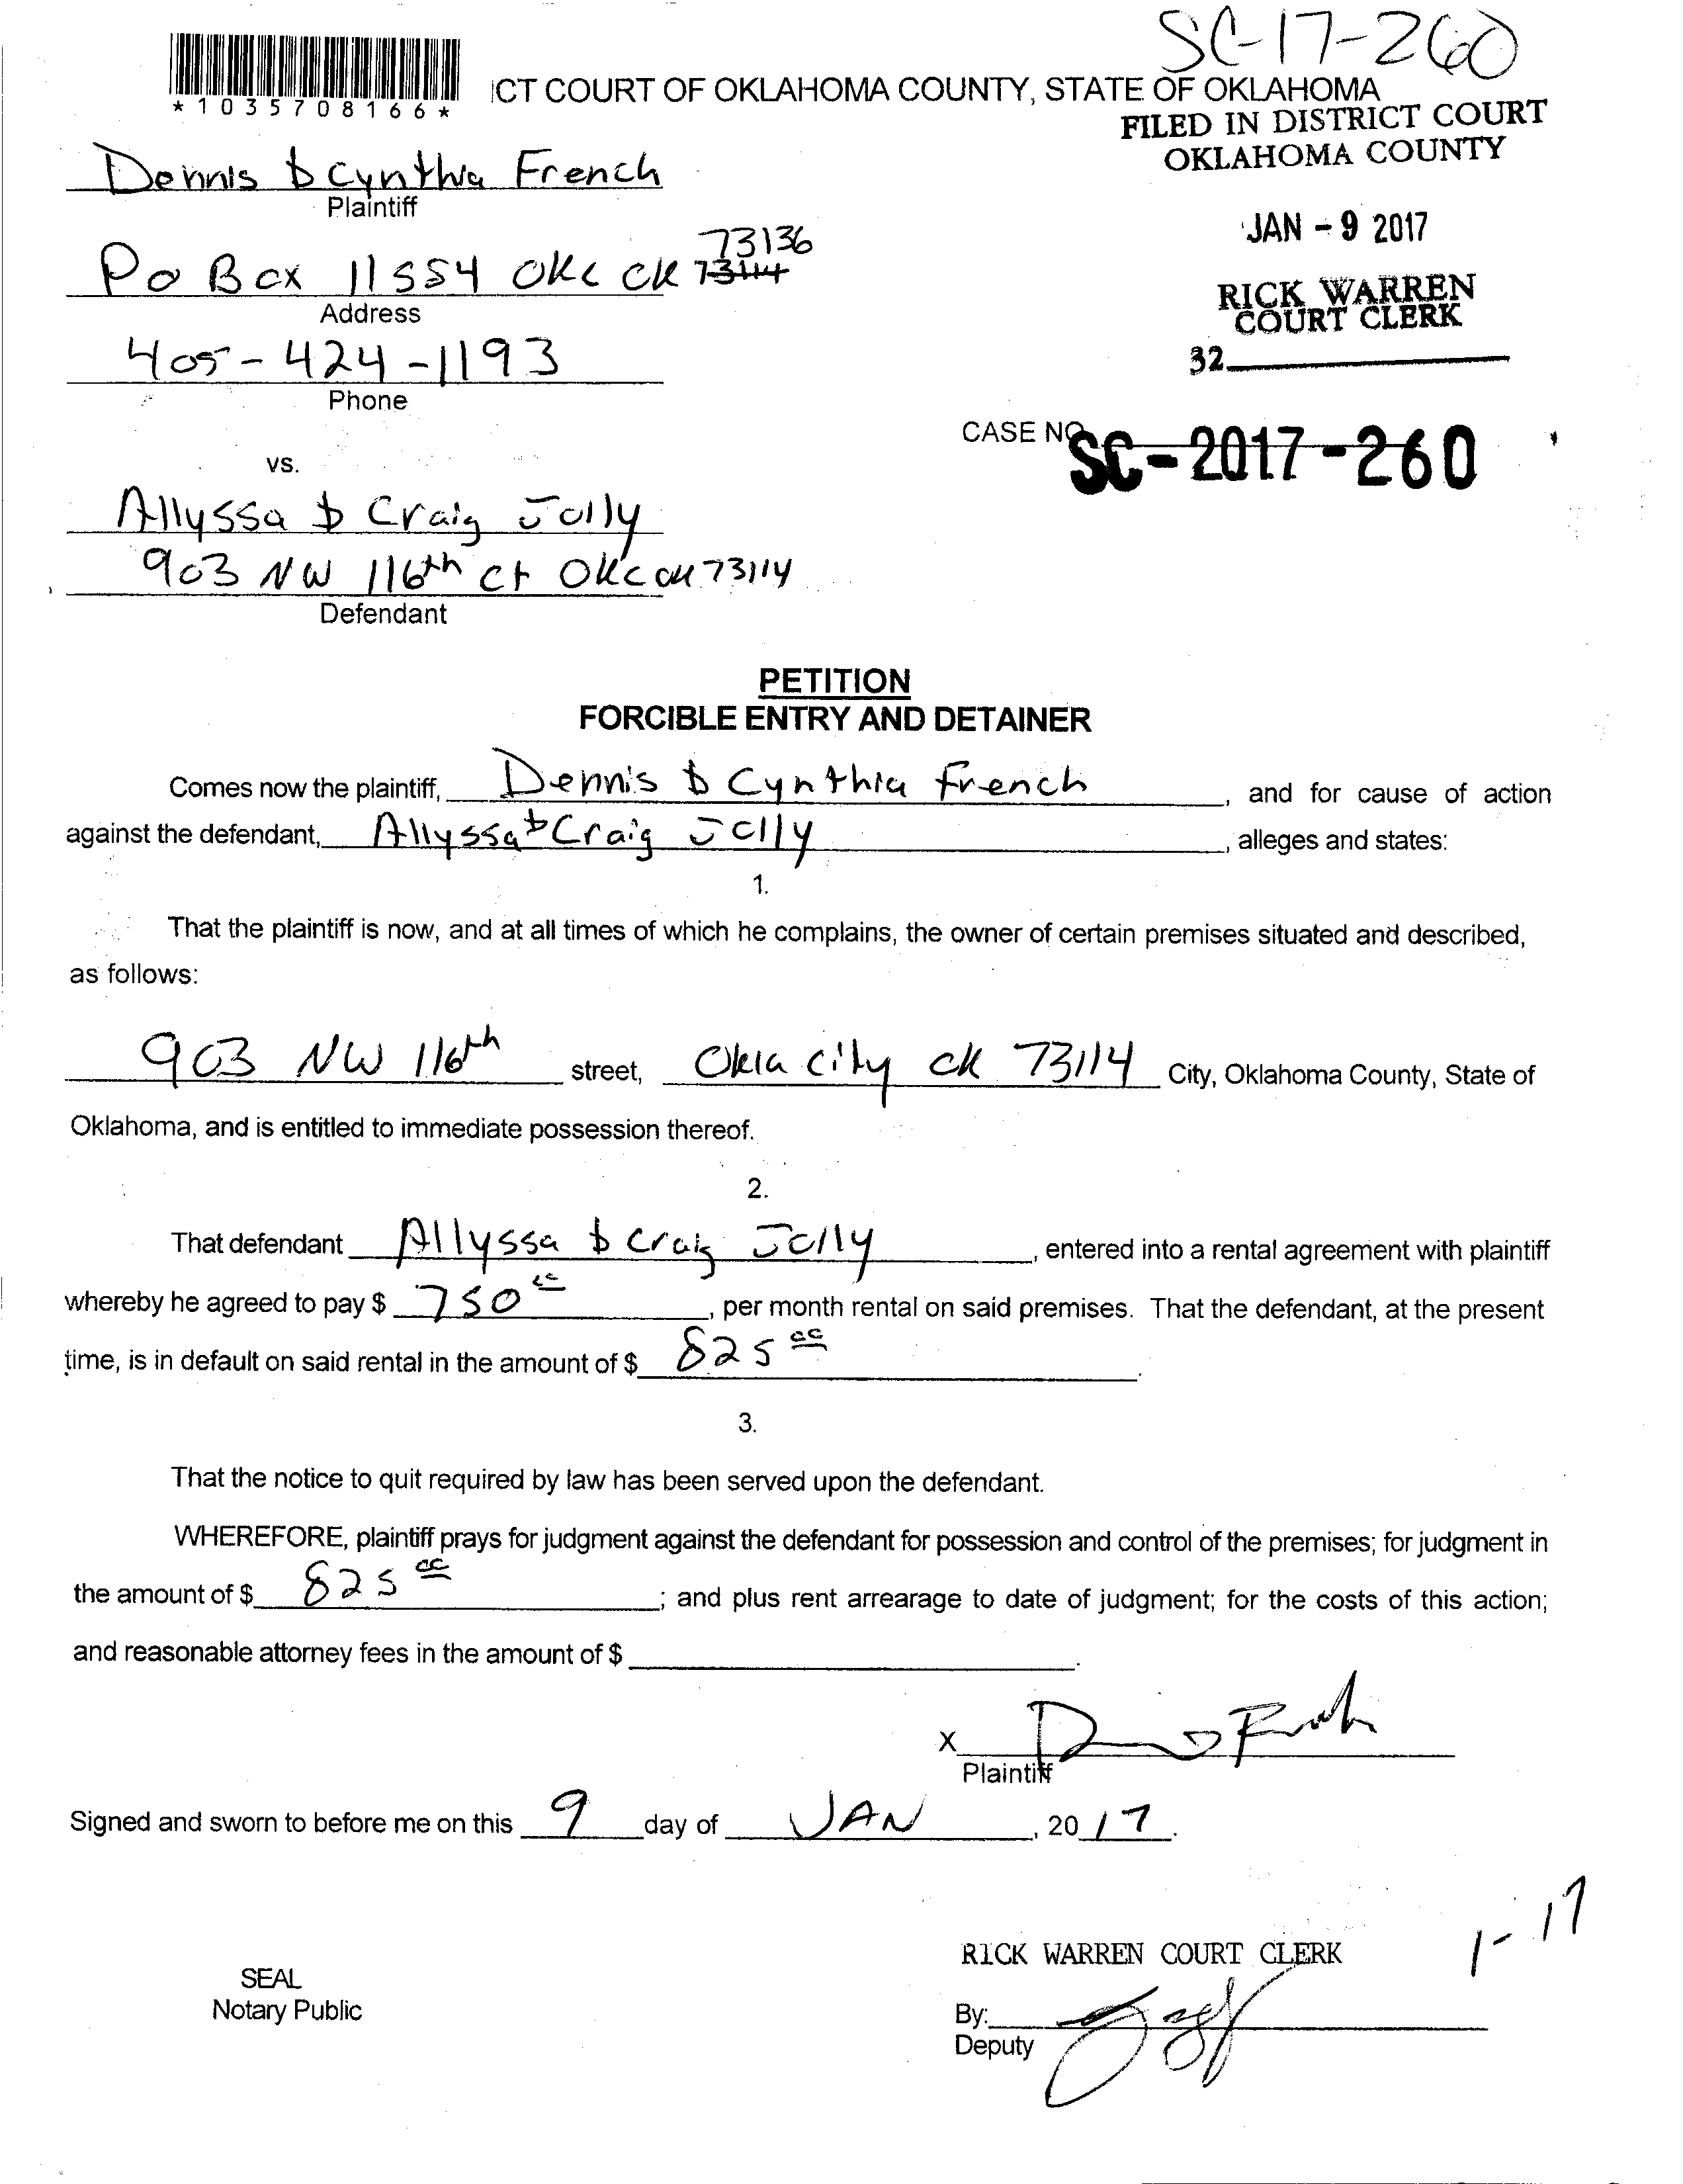 SC-17-260
*1035708166*
ICT COURT OF OKLAHOMA COUNTY, STATE OF OKLAHOMA
FILED IN DISTRICT COURT
OKLAHOMA COUNTY
Dennis & Cynthia French
Plaintiff
JAN - 9 2017
73136
Po Box 11554 OKC OK 73114
Address
RICK WARREN
COURT CLERK
405-424-1193
32
Phone
CASE NO.
SC-2017-260
vs.
Allyssa & Craig Jolly
903 NW 116th Ct OKC OK 73114
Defendant
PETITION
FORCIBLE ENTRY AND DETAINER
Comes now the plaintiff, Dennis & Cynthia French, and for cause of action
against the defendant, Allyssa & Craig Jolly, alleges and states:
1.
That the plaintiff is now, and at all times of which he complains, the owner of certain premises situated and described,
as follows:
903 NW 116th street, Okla City OK 73114 City, Oklahoma County, State of
Oklahoma, and is entitled to immediate possession thereof.
2.
That defendant Allyssa & Craig Jolly, entered into a rental agreement with plaintiff
whereby he agreed to pay $ 750 00, per month rental on said premises. That the defendant, at the present
time, is in default on said rental in the amount of $ 825 00.
3.
That the notice to quit required by law has been served upon the defendant.
WHEREFORE, plaintiff prays for judgment against the defendant for possession and control of the premises; for judgment in
the amount of $ 825 00; and plus rent arrearage to date of judgment; for the costs of this action;
and reasonable attorney fees in the amount of $
X
Plaintiff
Signed and sworn to before me on this 9 day of JAN, 20 17.
1-17
RICK WARREN COURT CLERK
SEAL
Notary Public
By:
Deputy